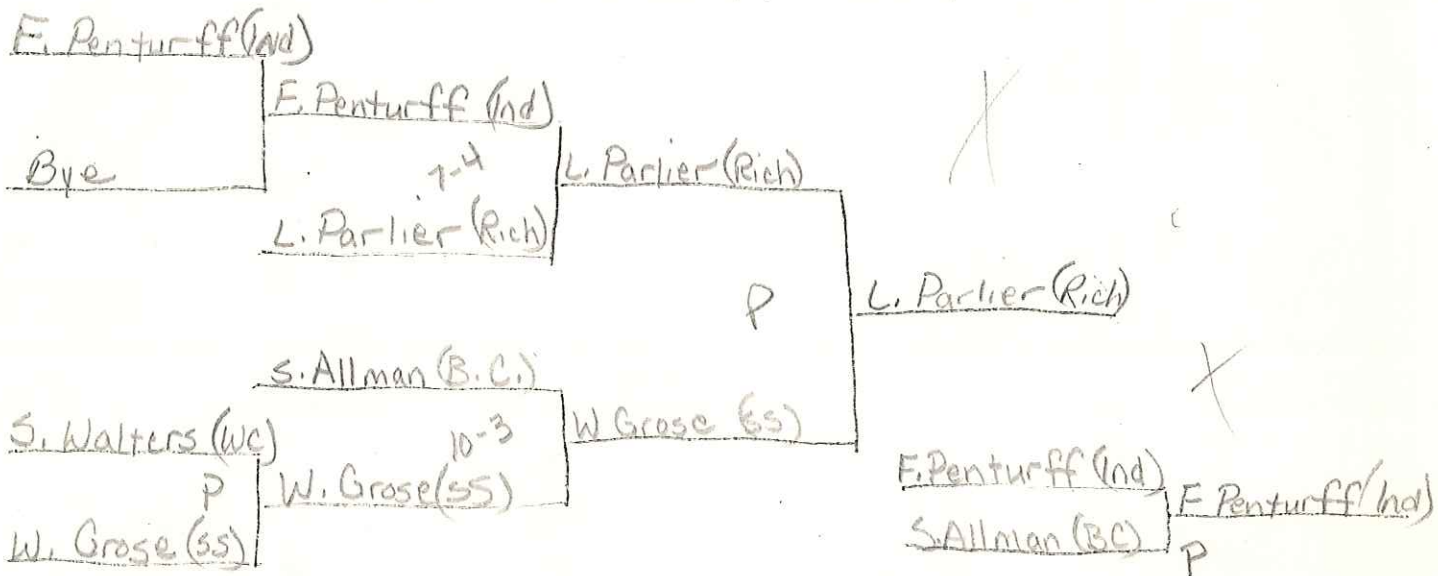 F. Penturff (Ind)
Bye
F. Penturff (Ind)
7-4
L. Parlier (Rich)
L. Parlier (Rich)
P
L. Parlier (Rich)
S. Allman (B.C.)
10-3
W Grose (SS)
S. Walters (WC)
P
W. Grose (SS)
W. Grose (SS)
F. Penturff (Ind)
S. Allman (BC)
F Penturff (Ind)
P